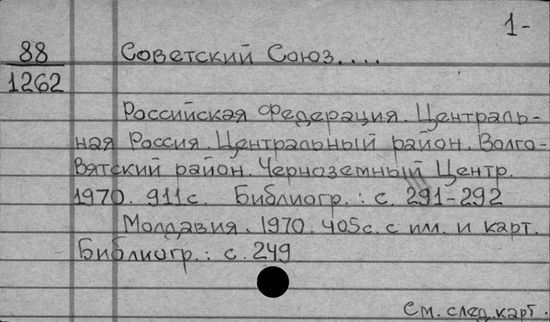 1-
88 Советский Союз....
1262
Российская Федерация. Централь-
ная Россия. Центральный район. Волго-
Вятский район. Черноземный Центр.
1970. 911с. Библиогр.: с. 291-292
Молдавия. 1970. 405с. с илл. и карт.
Библиогр.: с. 249
См. след. карт.